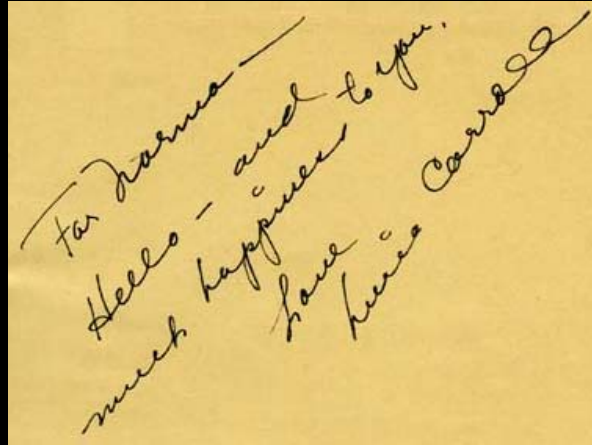 For Norma -
Hello - and
much happiness to you.
Love
Carroll